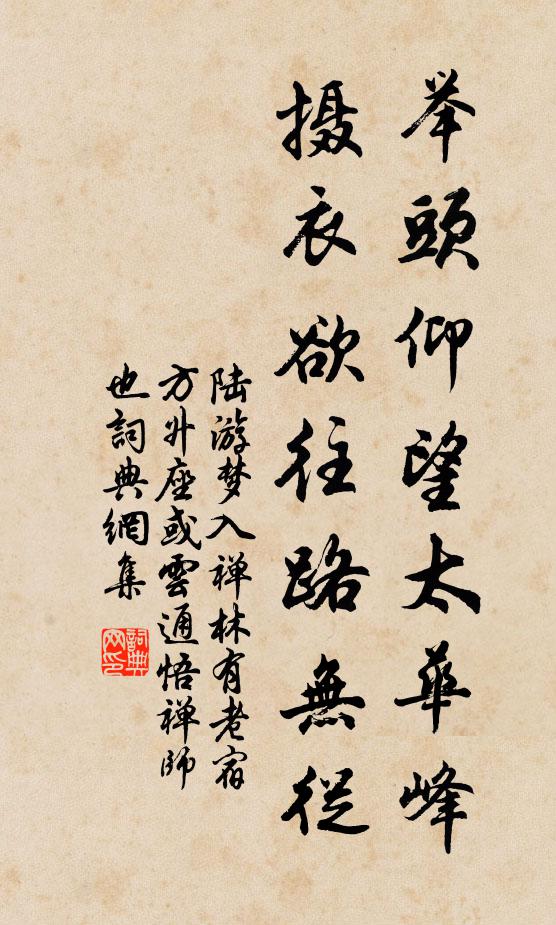 举頭仰望太華峰
摄衣欲往路無從
陆游梦入禅林有老宿
方升座或雲通悟禅師
也詞典網集
詞典
网印